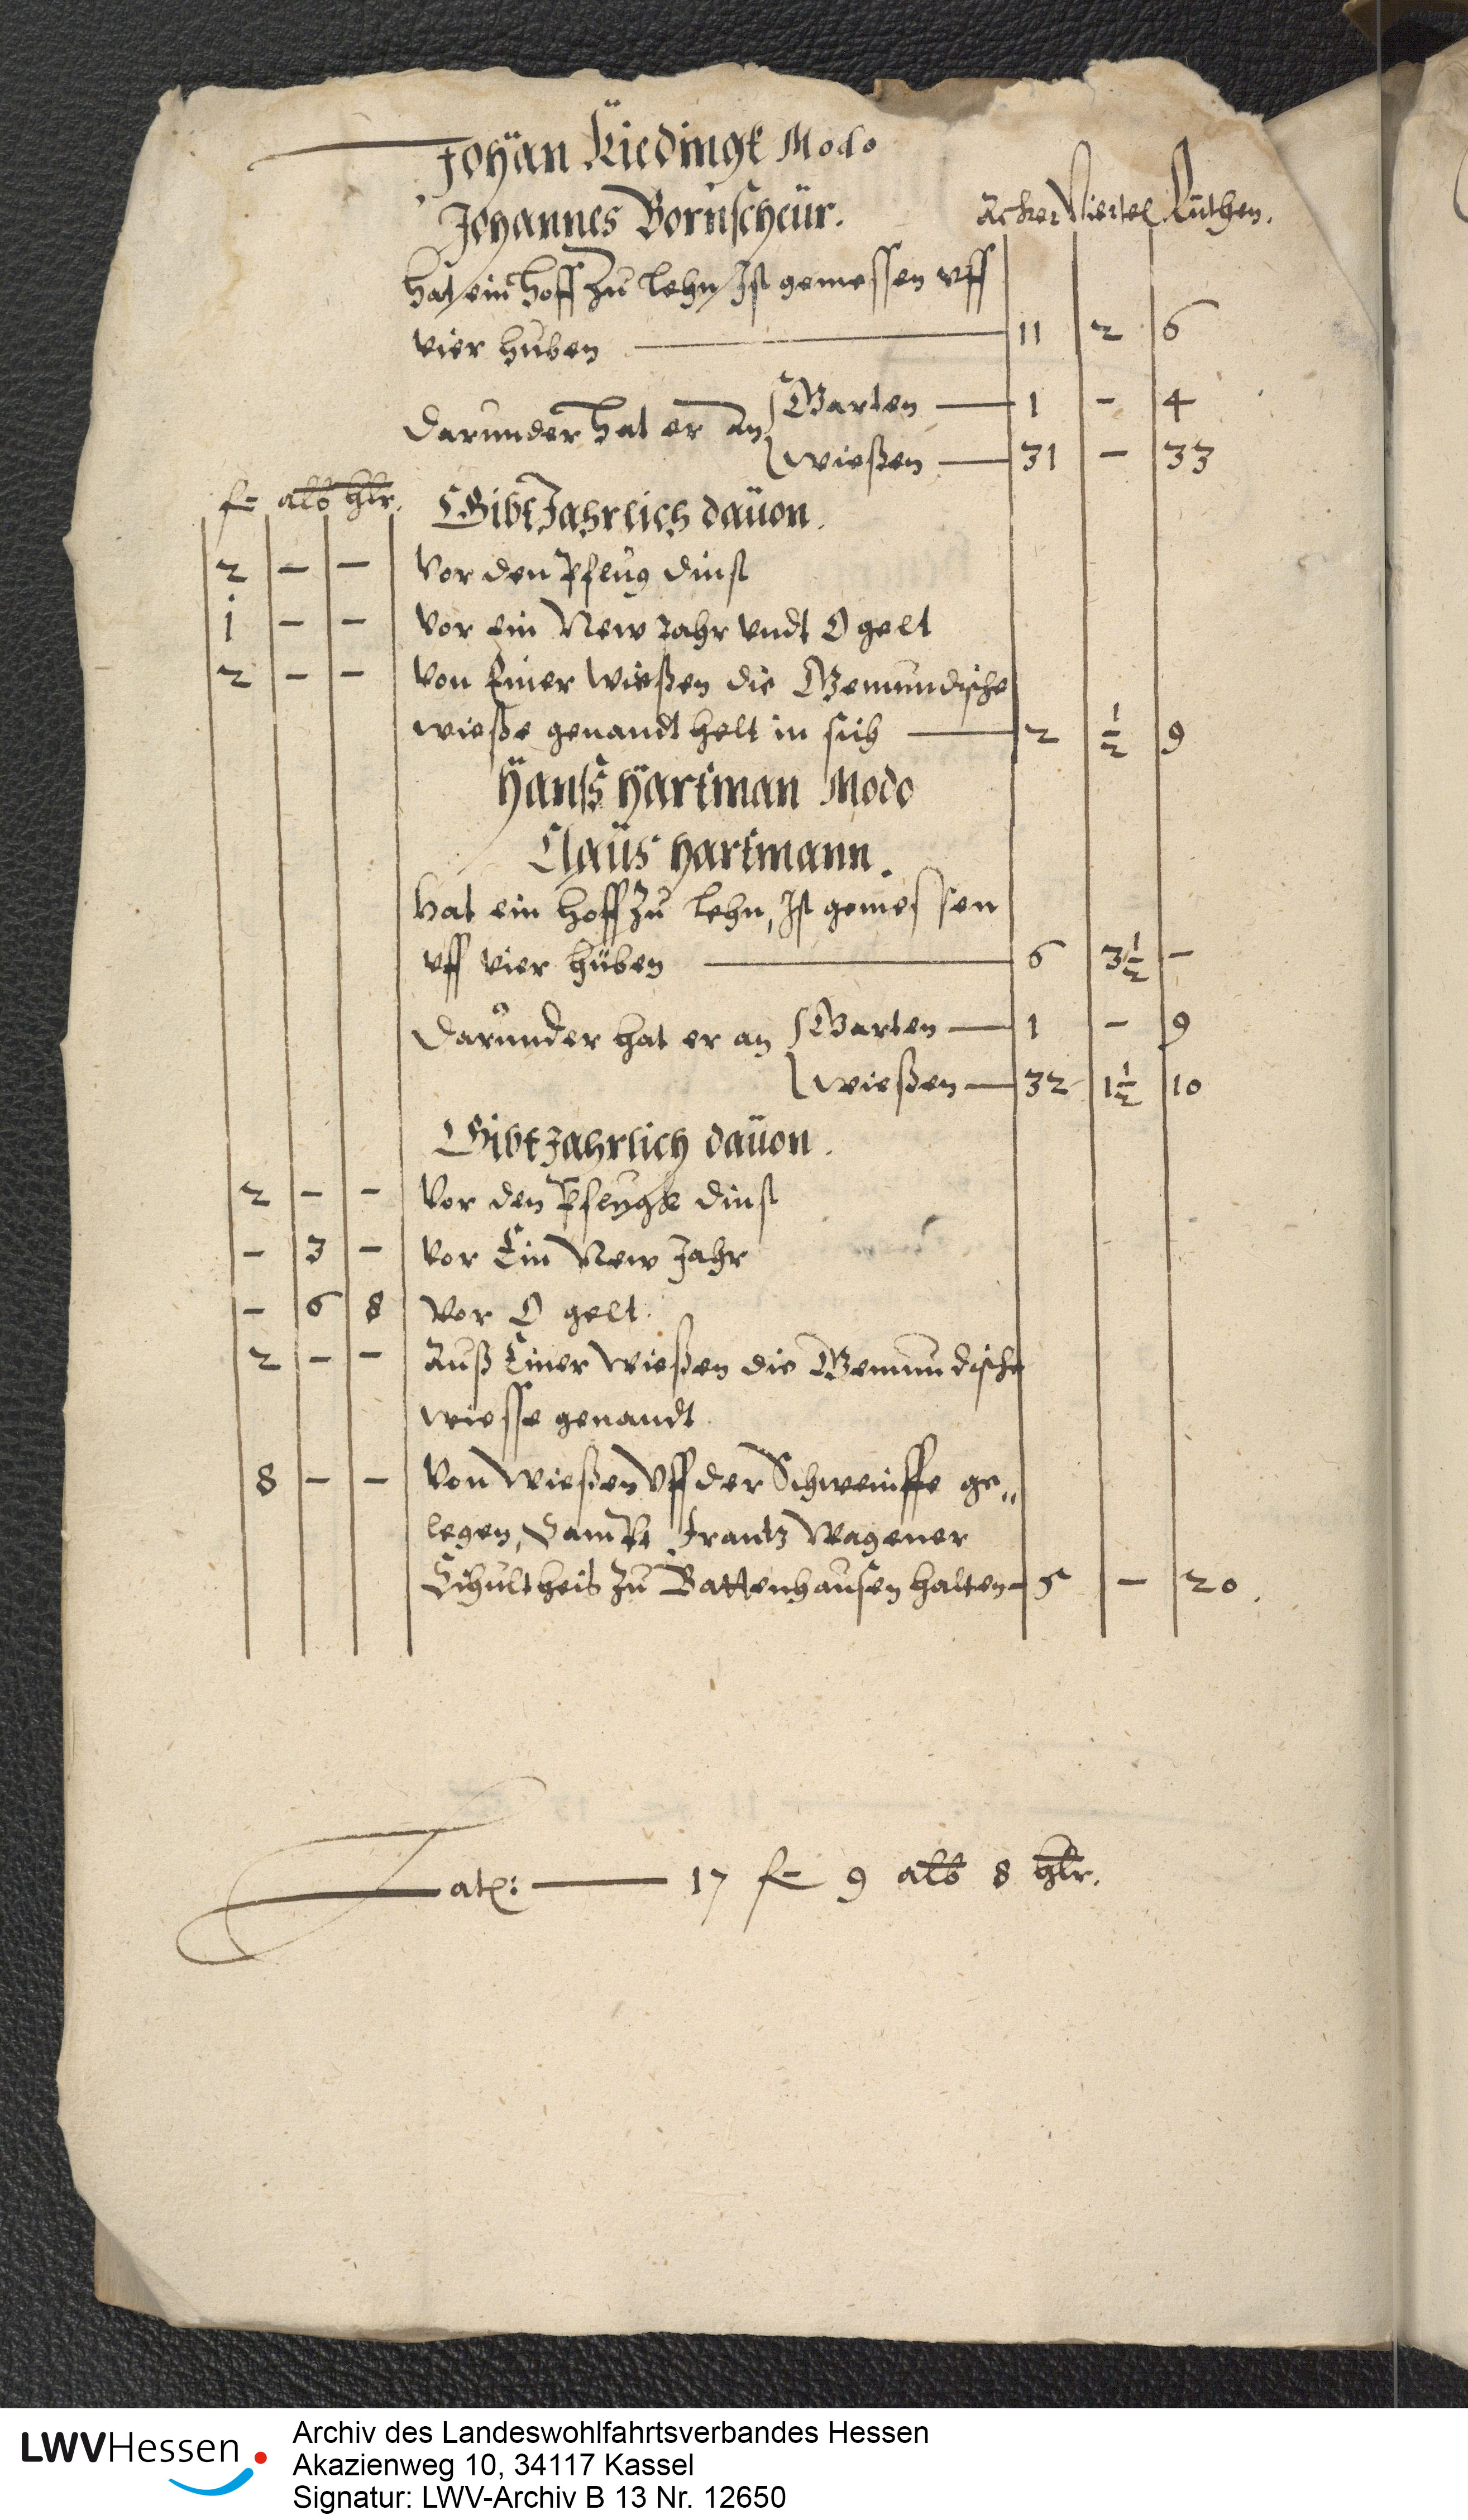 Johan Riedingk Modo
Johannes Bornscheür. Acker Viertel Ruthen.
hat ein hoff zu lehn, Ist gemessen vff
vier huben — 11 2 6
Darunder hat er an Garten — 1 - 4
Wießen — 31 - 33
fl alb hlr. Gibt Jahrlich dauon.
2 - - Vor den Pflug dinst
1 - - Vor ein New Jahr vndt O gelt
2 - - Von Einer Wießen die Gemundische
wieße genandt helt in sich — 2 ½ 9
Hanß Hartman Modo
Claüs Hartmann.
Hat ein hoff zu lehn, Ist gemessen
vff vier huben — 6 3½ -
Darunder hat er an Garten — 1 - 9
Wießen — 32 1½ 10
Gibt Jahrlich dauon.
2 - - Vor den Pflugk dinst
- 3 - Vor Ein New Jahr
- 6 8 Vor O gelt.
2 - - Auß Einer Wießen die Gemundische
wiesse genandt
8 - - Von Wießen Vff der Schweinffe ge„
legen, Sampt Frantz Wagener
Schultheis zu Battenhausen halten - 5 - 20.
Latꝰ: — 17 fl 9 alb 8 hlr.
LWVHessen
Archiv des Landeswohlfahrtsverbandes Hessen
Akazienweg 10, 34117 Kassel
Signatur: LWV-Archiv B 13 Nr. 12650